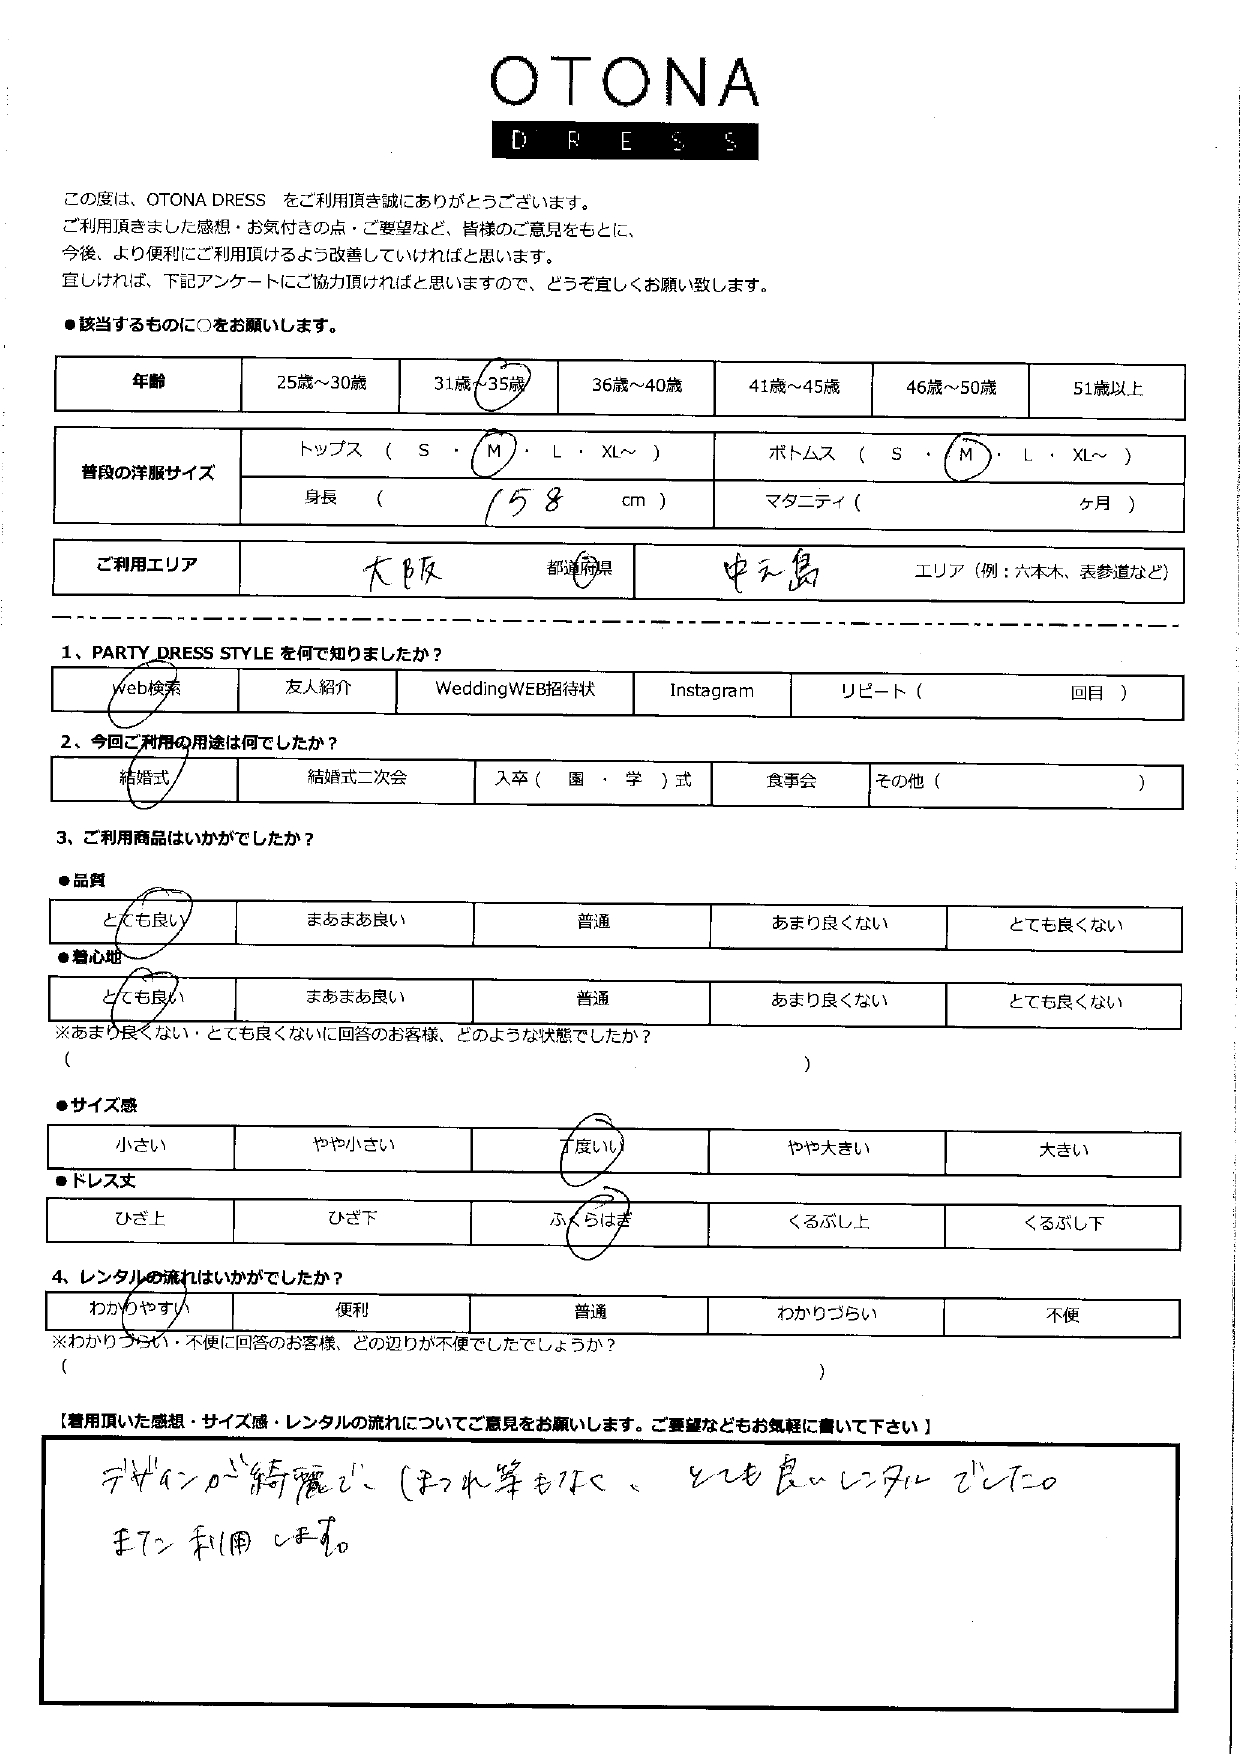 OTONA
DRESS
この度は、OTONA DRESS　をご利用頂き誠にありがとうございます。
ご利用頂きました感想・お気付きの点・ご要望など、皆様のご意見をもとに、
今後、より便利にご利用頂けるよう改善していければと思います。
宜しければ、下記アンケートにご協力頂ければと思いますので、どうぞ宜しくお願い致します。
●該当するものに○をお願いします。
年齢 25歳～30歳 31歳～35歳 36歳～40歳 41歳～45歳 46歳～50歳 51歳以上
普段の洋服サイズ トップス （ S ・ M ・ L ・ XL～ ） ボトムス （ S ・ M ・ L ・ XL～ ）
身長 （ 158 cm ） マタニティ（ ヶ月 ）
ご利用エリア 大阪 都道府県 中之島 エリア（例：六本木、表参道など）
1、PARTY DRESS STYLE を何で知りましたか？
web検索 友人紹介 WeddingWEB招待状 Instagram リピート（ 回目 ）
2、今回ご利用の用途は何でしたか？
結婚式 結婚式二次会 入卒（ 園 ・ 学 ）式 食事会 その他（ ）
3、ご利用商品はいかがでしたか？
●品質
とても良い まあまあ良い 普通 あまり良くない とても良くない
●着心地
とても良い まあまあ良い 普通 あまり良くない とても良くない
※あまり良くない・とても良くないに回答のお客様、どのような状態でしたか？
（ ）
●サイズ感
小さい やや小さい 丁度いい やや大きい 大きい
●ドレス丈
ひざ上 ひざ下 ふくらはぎ くるぶし上 くるぶし下
4、レンタルの流れはいかがでしたか？
わかりやすい 便利 普通 わかりづらい 不便
※わかりづらい・不便に回答のお客様、どの辺りが不便でしたでしょうか？
（ ）
【着用頂いた感想・サイズ感・レンタルの流れについてご意見をお願いします。ご要望などもお気軽に書いて下さい】
デザインが綺麗で、ほつれ等もなく、とても良いレンタルでした。
また利用します。